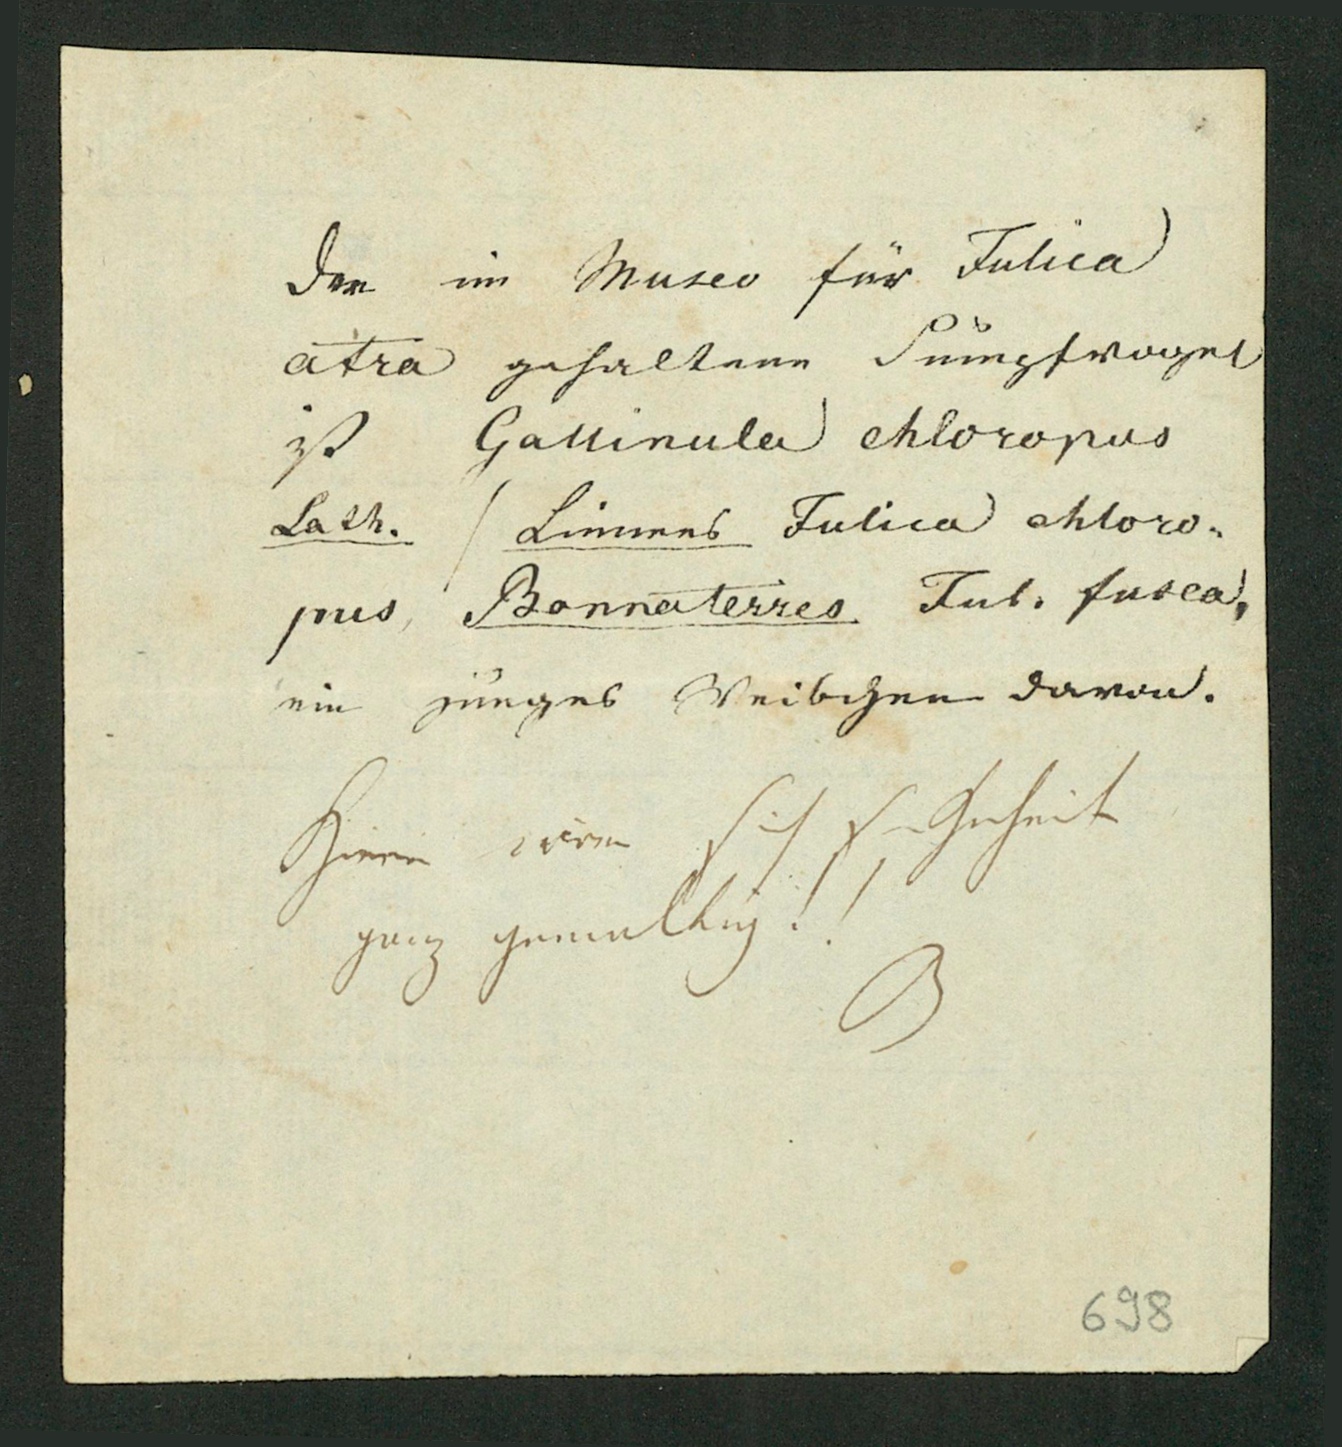 Der im Museo für Fulica
atra gehaltene Sumpfvogel
ist Gallinula chloropus
Lath. / Linnees Fulica chloro-
pus, Bonnaterres Ful. fusca,
ein junges Weibchen davon.
Hierin irren sich
ganz gewaltig!!
B
698